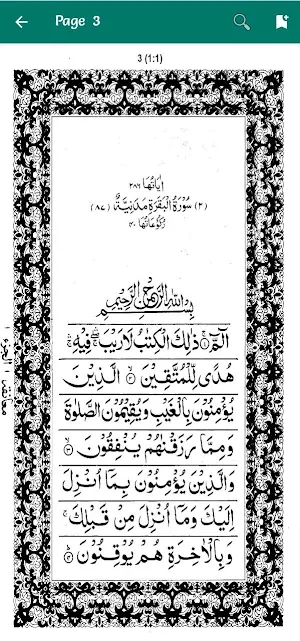 Page 3
3 (1:1)
اٰیَاتُهَا ٢٨٦
(٢) سُوْرَةُ الْبَقَرَةِ مَدَنِیَّةٌ (٨٧)
رُكُوْعَاتُهَا ٤٠
بِسْمِ اللّٰهِ الرَّحْمٰنِ الرَّحِیْمِ
الٓمّٓ ۚ١ ذٰلِكَ الْكِتٰبُ لَا رَیْبَ ۛۖۚ فِیْهِ ۛۚ
هُدًی لِّلْمُتَّقِیْنَ ۙ٢ الَّذِیْنَ
یُؤْمِنُوْنَ بِالْغَیْبِ وَیُقِیْمُوْنَ الصَّلٰوةَ
وَمِمَّا رَزَقْنٰهُمْ یُنْفِقُوْنَ ۙ٣
وَالَّذِیْنَ یُؤْمِنُوْنَ بِمَاۤ اُنْزِلَ
اِلَیْكَ وَمَاۤ اُنْزِلَ مِنْ قَبْلِكَ ۚ
وَبِالْاٰخِرَةِ هُمْ یُوْقِنُوْنَ ؕ٤
معانقة ١ الجزء ١